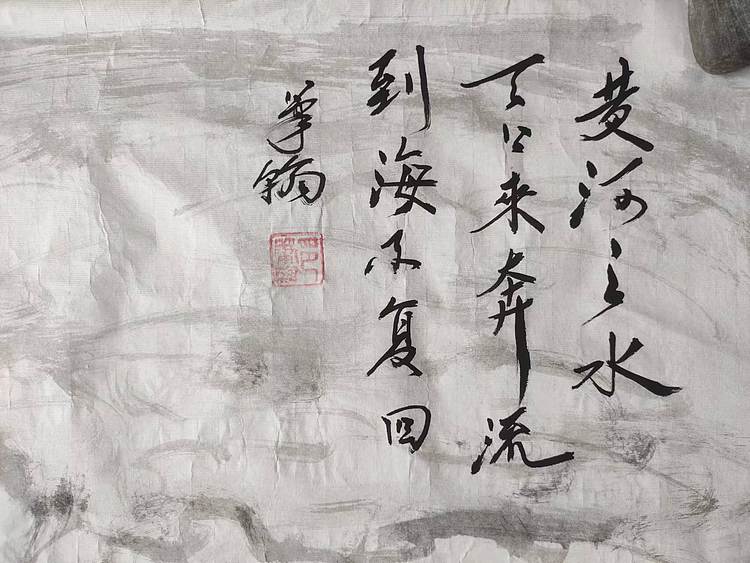 黄河之水
天上來奔流
到海不复回